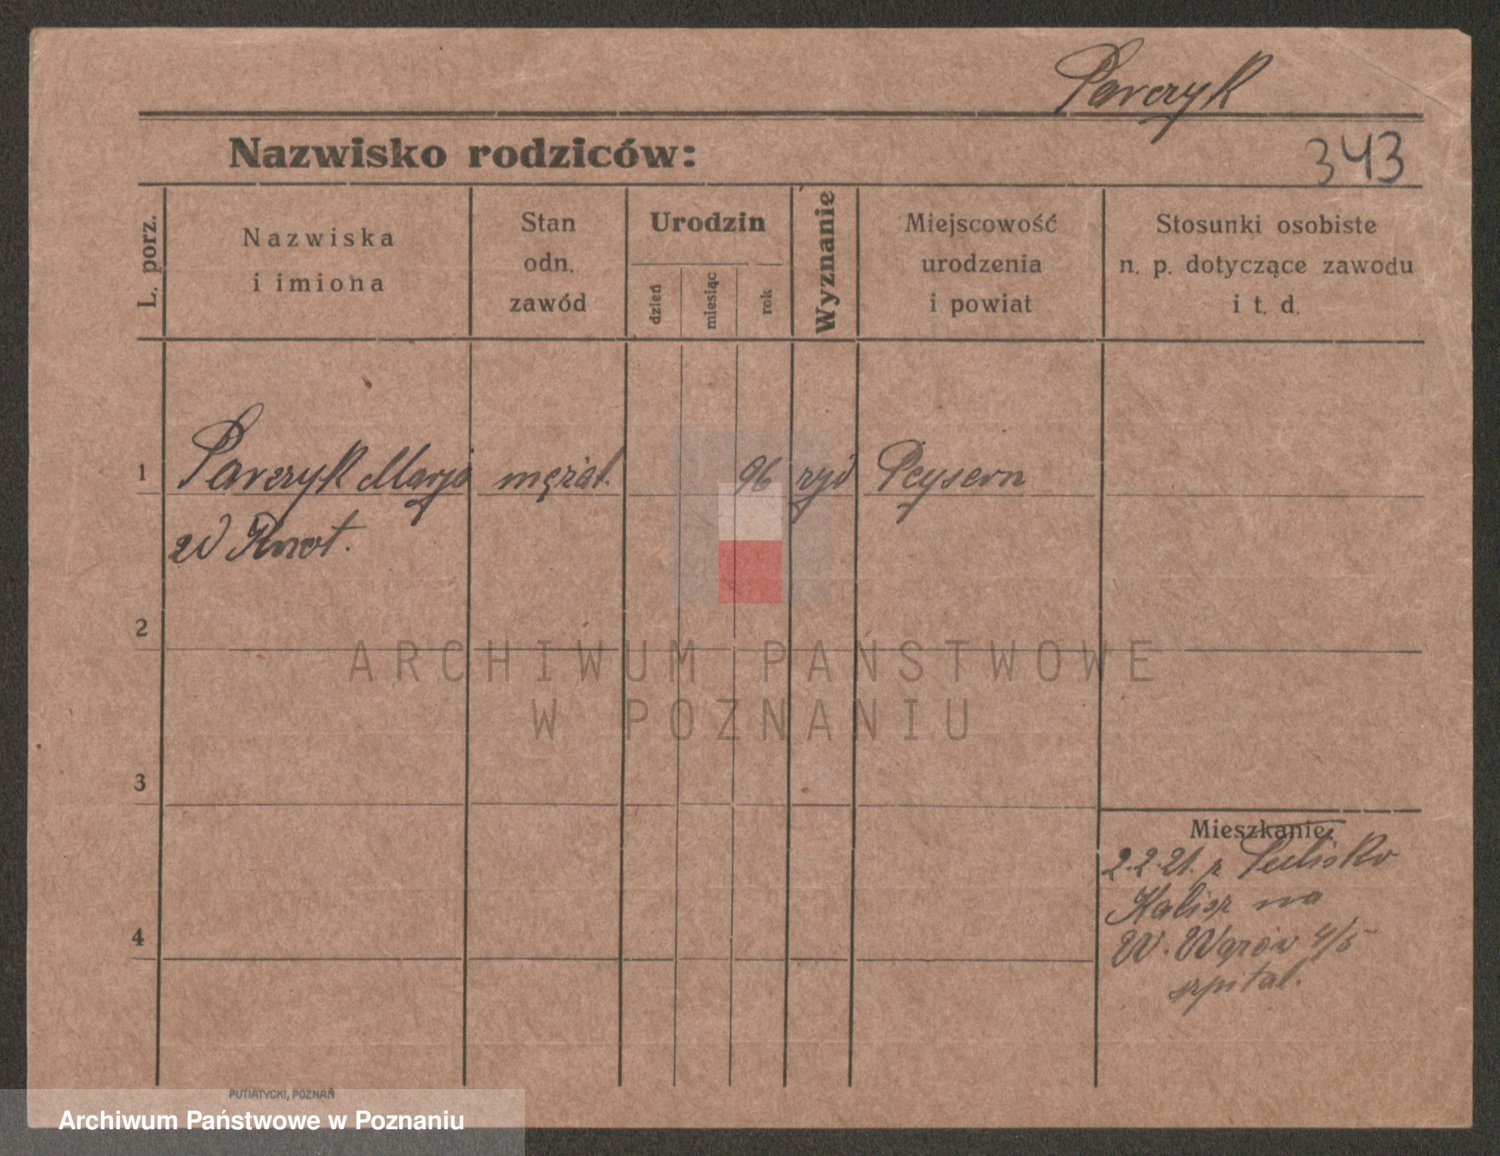 Parczyk
Nazwisko rodziców:
343
L. porz.
Nazwiska
i imiona
Stan
odn.
zawód
Urodzin
dzień
miesiąc
rok
Wyznanie
Miejscowość
urodzenia
i powiat
Stosunki osobiste
n. p. dotyczące zawodu
i t. d.
1
Parczyk Marja mężat. 96 Peysern
2
ARCHIWUM PAŃSTWOWE
W POZNANIU
3
Mieszkanie:
2.2.21. z
Kalisz na
4
W. 4/5
szpital.
PUTIATYCKI, POZNAŃ
Archiwum Państwowe w Poznaniu